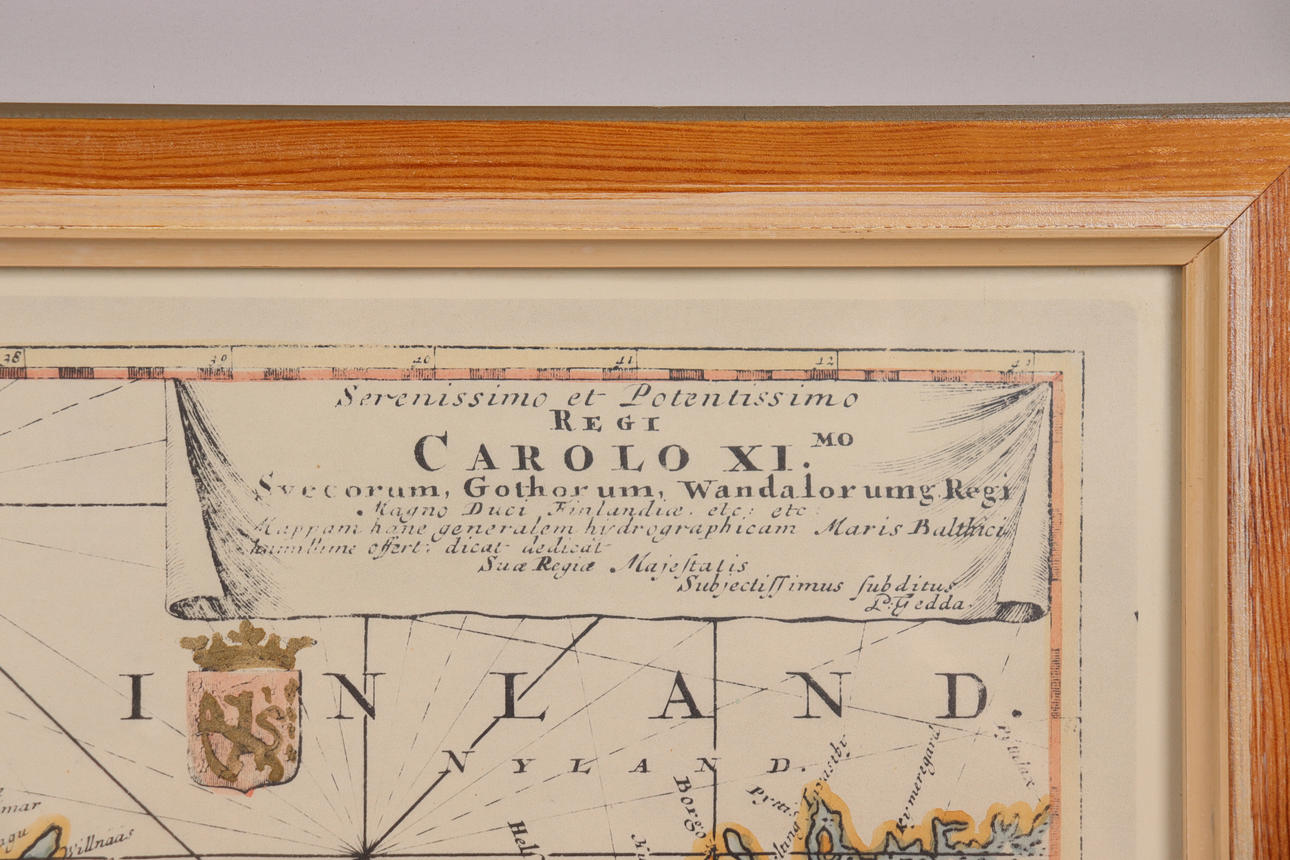 38 39 40 41 42
Serenissimo et Potentissimo
REGI
CAROLO XI.MO
Svecorum, Gothorum, Wandalorumq Regi
Magno Duci Finlandiæ. etc: etc:
Mappam hanc generalem hydrographicam Maris Balthici
humillime offert: dicat dedicat
Suæ Regiæ Majeſtatis
Subjectiſſimus ſubditus
P. Gedda.
INLAND.
NYLAND.
Borgo
Willnäas